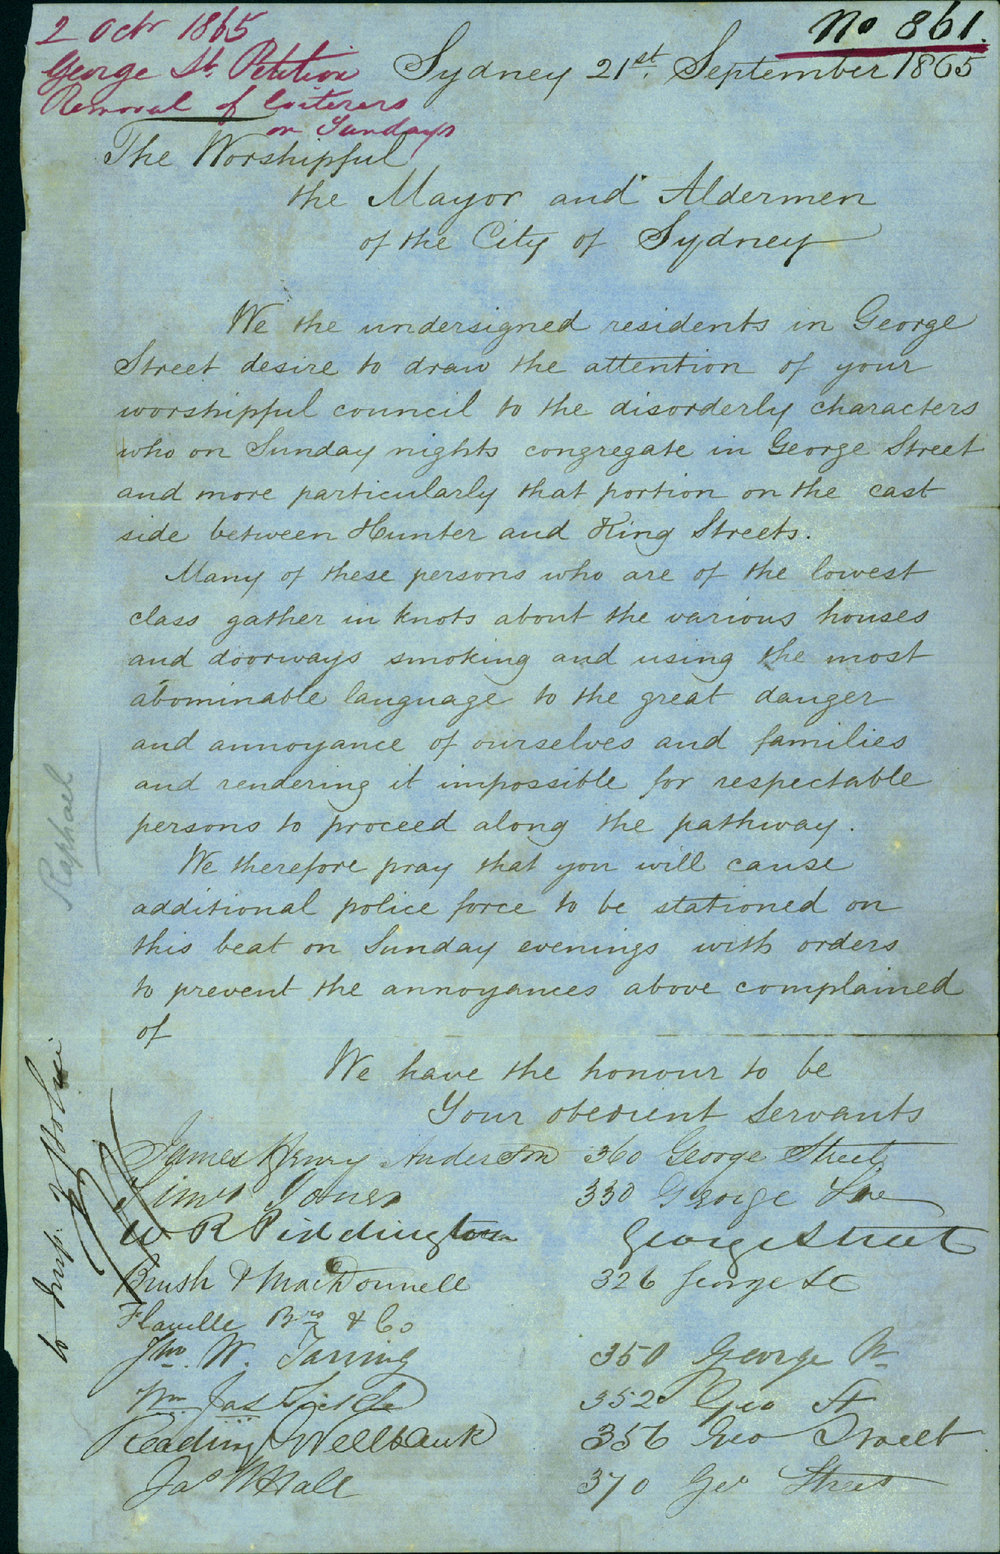 2 Octr 1865
George St. Petition
Removal of loiterers
on Sundays
No 861.
Sydney 21st. September 1865
The Worshipful
the Mayor and Aldermen
of the City of Sydney
We the undersigned residents in George
Street desire to draw the attention of your
worshipful council to the disorderly characters
who on Sunday nights congregate in George Street
and more particularly that portion on the east
side between Hunter and King Streets.
Many of these persons who are of the lowest
class gather in knots about the various houses
and doorways smoking and using the most
abominable language to the great danger
and annoyance of ourselves and families
and rendering it impossible for respectable
persons to proceed along the pathway.
We therefore pray that you will cause
additional police force to be stationed on
this beat on Sunday evenings with orders
to prevent the annoyances above complained
of
We have the honour to be
Your obedient servants
James Henry Anderson 360 George Street
Jones 330 George
W R Piddington George Street
Brush & MacDonnell 326 George St
Flavelle Bros & Co
Jno. W. Tarring 350 George
Wm Jas 352 Geo St
Reading & Wellbank 356 Geo Street
Jas Hall 370 Geo Street
Raphael
to Insp. of